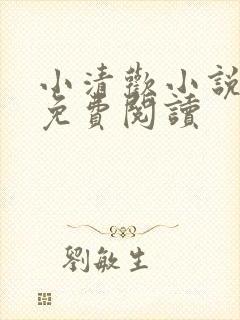 小清歡小說
免費閱讀
劉敏生